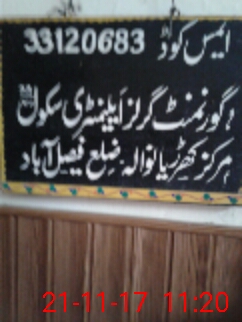 ایمس کوڈ 33120683
گورنمنٹ گرلز ایلیمنٹری سکول
مرکز کھڑیانوالہ ضلع فیصل آباد
21-11-17 11:20